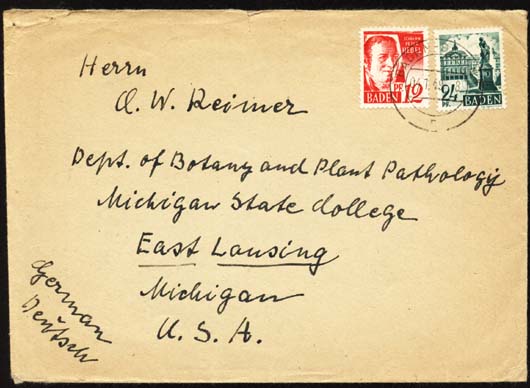 Herrn
A. W. Reimer
Dept. of Botany and Plant Pathology
Michigan State College
East Lansing
Michigan
U. S. A.
German
Deutsch
JOHANN
PETER
HEBEL
12
PF
BADEN
24
BADEN